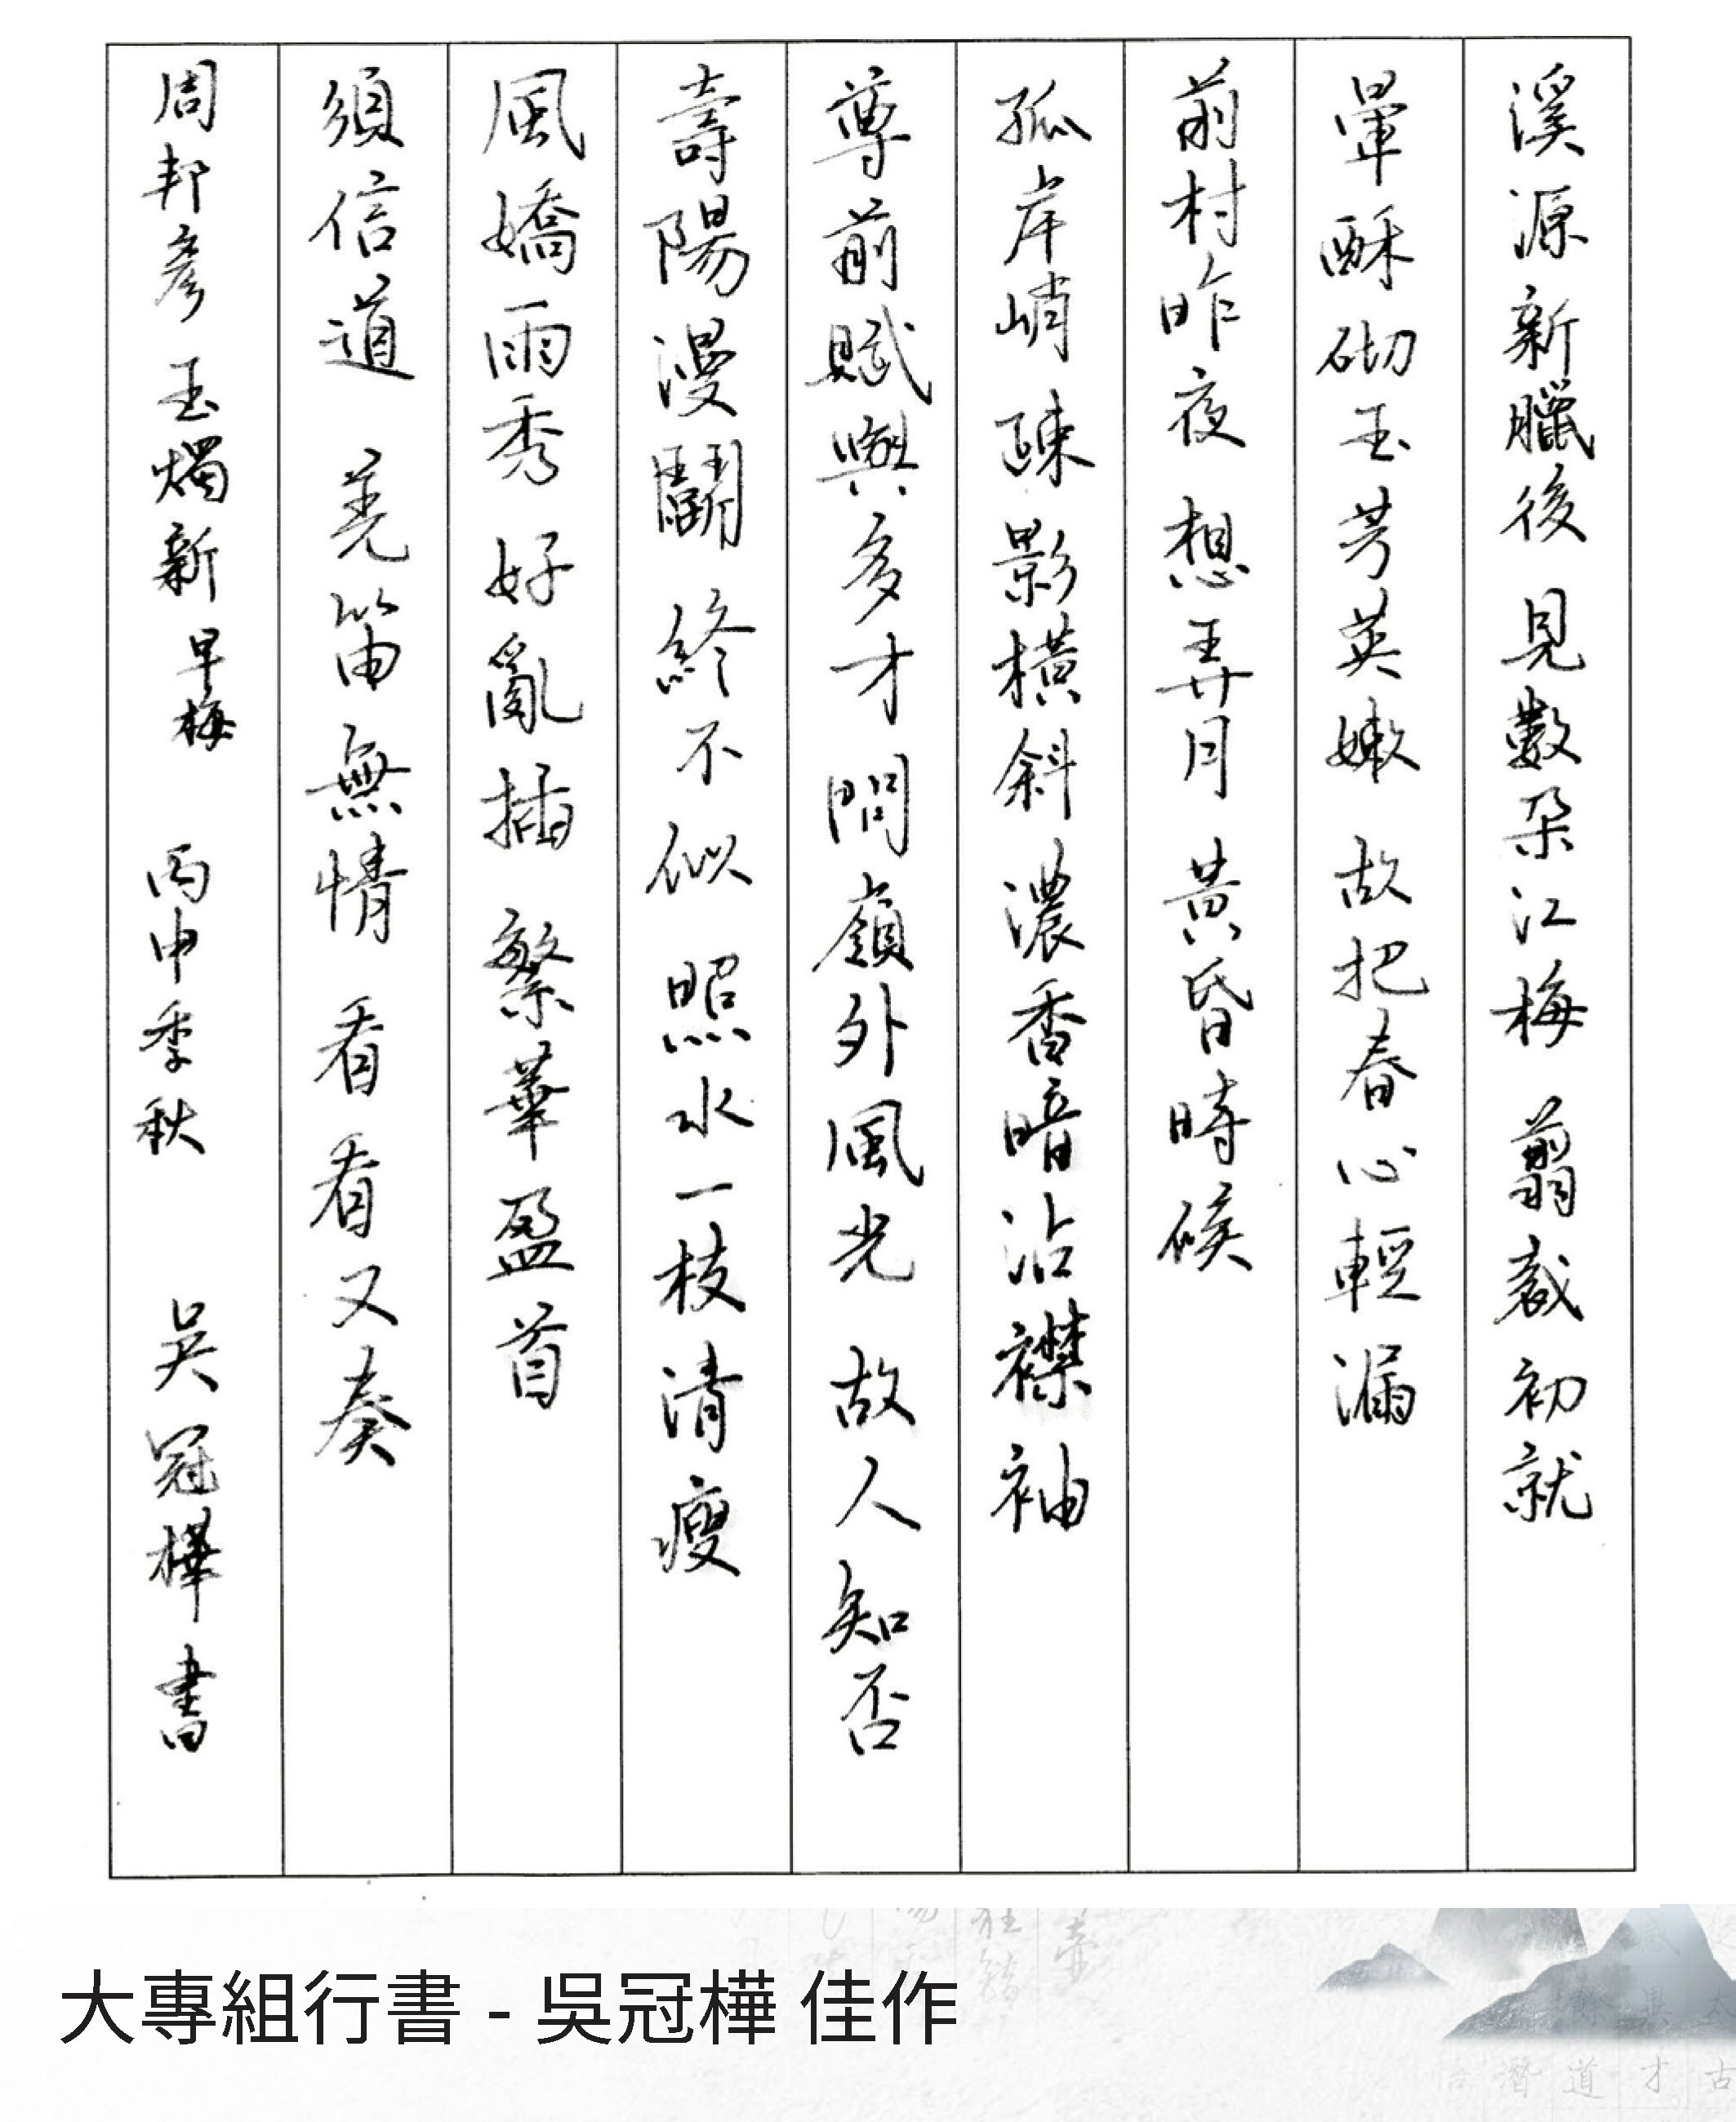 溪源新臘後 見數朵江梅 翦裁初就
暈酥砌玉芳英嫩 故把春心輕漏
前村昨夜 想弄月 黄昏時候
孤岸峭 疎影橫斜 濃香暗沾襟袖
尊前賦與多才 問嶺外風光 故人知否
壽陽漫鬪 終不似 照水一枝清瘦
風嬌雨秀 好亂插 繁華盈首
須信道 羌笛無情 看看又奏
周邦彥 玉燭新 早梅 丙申季秋 吳冠樺書
大專組行書 - 吳冠樺 佳作